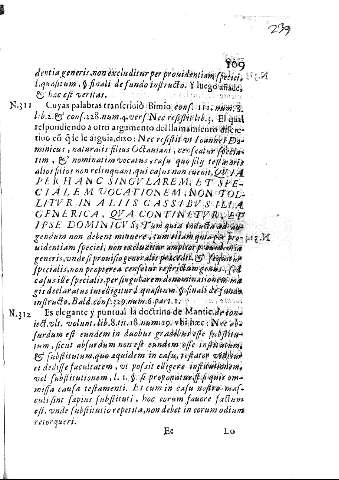 239
809
dentia generis, non excluditur per prouidentiam speciei,
l. quæsitum, §. finali de fundo instructo. Y luego añade,
& hoc est veritas.
N.311 Cuyas palabras transcriuiò Bimio conf. 111. num. 8.
lib. 2. & conf. 228. num. 4. vers. Nec resistit lib. 3. El qual
respondiendo à otro argumento del llamamiento discre-
tiuo cō q̄ se le aguia, dixo: Nec resistit vt Ioannes Do-
minicus, naturalis filius Octauiani, censeatur
tim, & nominatim vocatus, casu quo filij testatoris
alios filios non relinquant, qui casus non euenit, QVIA
PER HANC SINGVLAREM, ET SPE-
CIALEM VOCATIONEM, NON TOL-
LITVR IN ALIIS CASSIBVS ILLA
GENERICA, QVA CONTINETVR, ET
IPSE DOMINICVS; Tum quia inducta ad au-
gendum non debent minuere, tum etiam quia per pro-
uidentiam speciei, non excluditur amplior prouidentia
generis, vnde si prouisio generalis præcedit, & sequatur
specialis, non propterea censetur restrictum genus, sed
casus ille specialis, per singularem denominationem ma-
gis declaratus intelligitur, d. l. quæsitum, §. finali de fundo
instructo. Bald. conf. 329. num. 6. part. 1.
N.312 Es elegante y puntual la doctrina de Mantic. de con-
iect. vlt. volunt. lib. 8. tit. 18. num. 19. vbi hæc: Nec ab-
surdum est eundem in duobus gradibus esse substitu-
tum, sicut absurdum non est eundem esse institutum,
& substitutum, quo equidem in casu, testator videtur
ei dedisse facultatem, vt possit eligere institutionem,
vel substitutionem, l. 1. §. si proponatur, si quis omis-
sa causa testamenti. Et cum in casu nostro mas-
culi sint sæpius substituti, hoc eorum fauore factum
est, vnde substitutio repetita, non debet in eorum odium
retorqueri.
Ee Lo